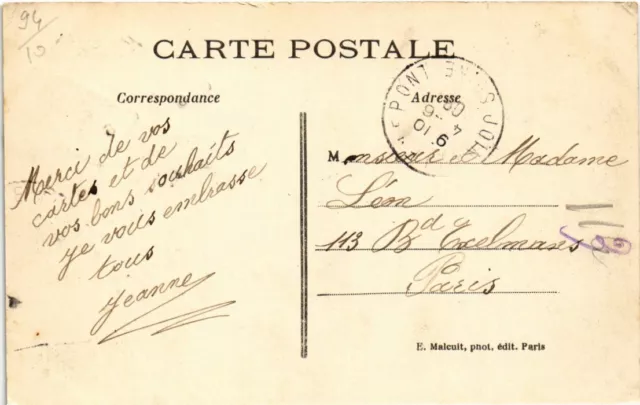 94
10
CARTE POSTALE
Correspondance
Adresse
PONT JOI
Merci de vos
cartes et de
vos bons souhaits
Je vous embrasse
tous
Jeanne
Monsieur et Madame
Léon
113 Bd Exelmans
Paris
E. Malcuit, phot. édit. Paris